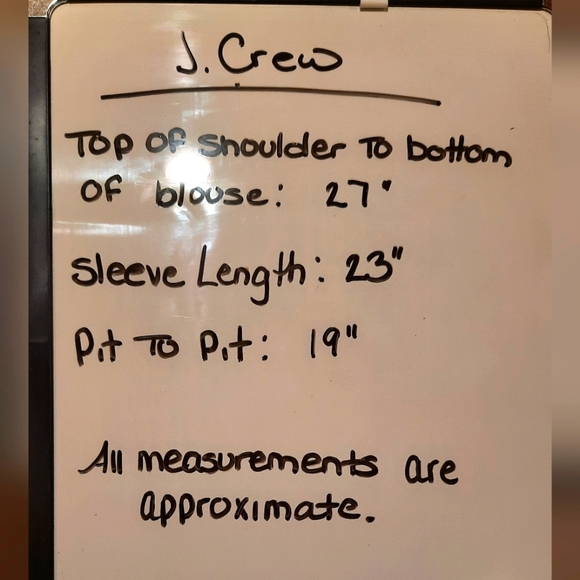 J. Crew
Top of shoulder To bottom
of blouse: 27"
Sleeve Length: 23"
Pit To Pit: 19"
All measurements are
approximate.